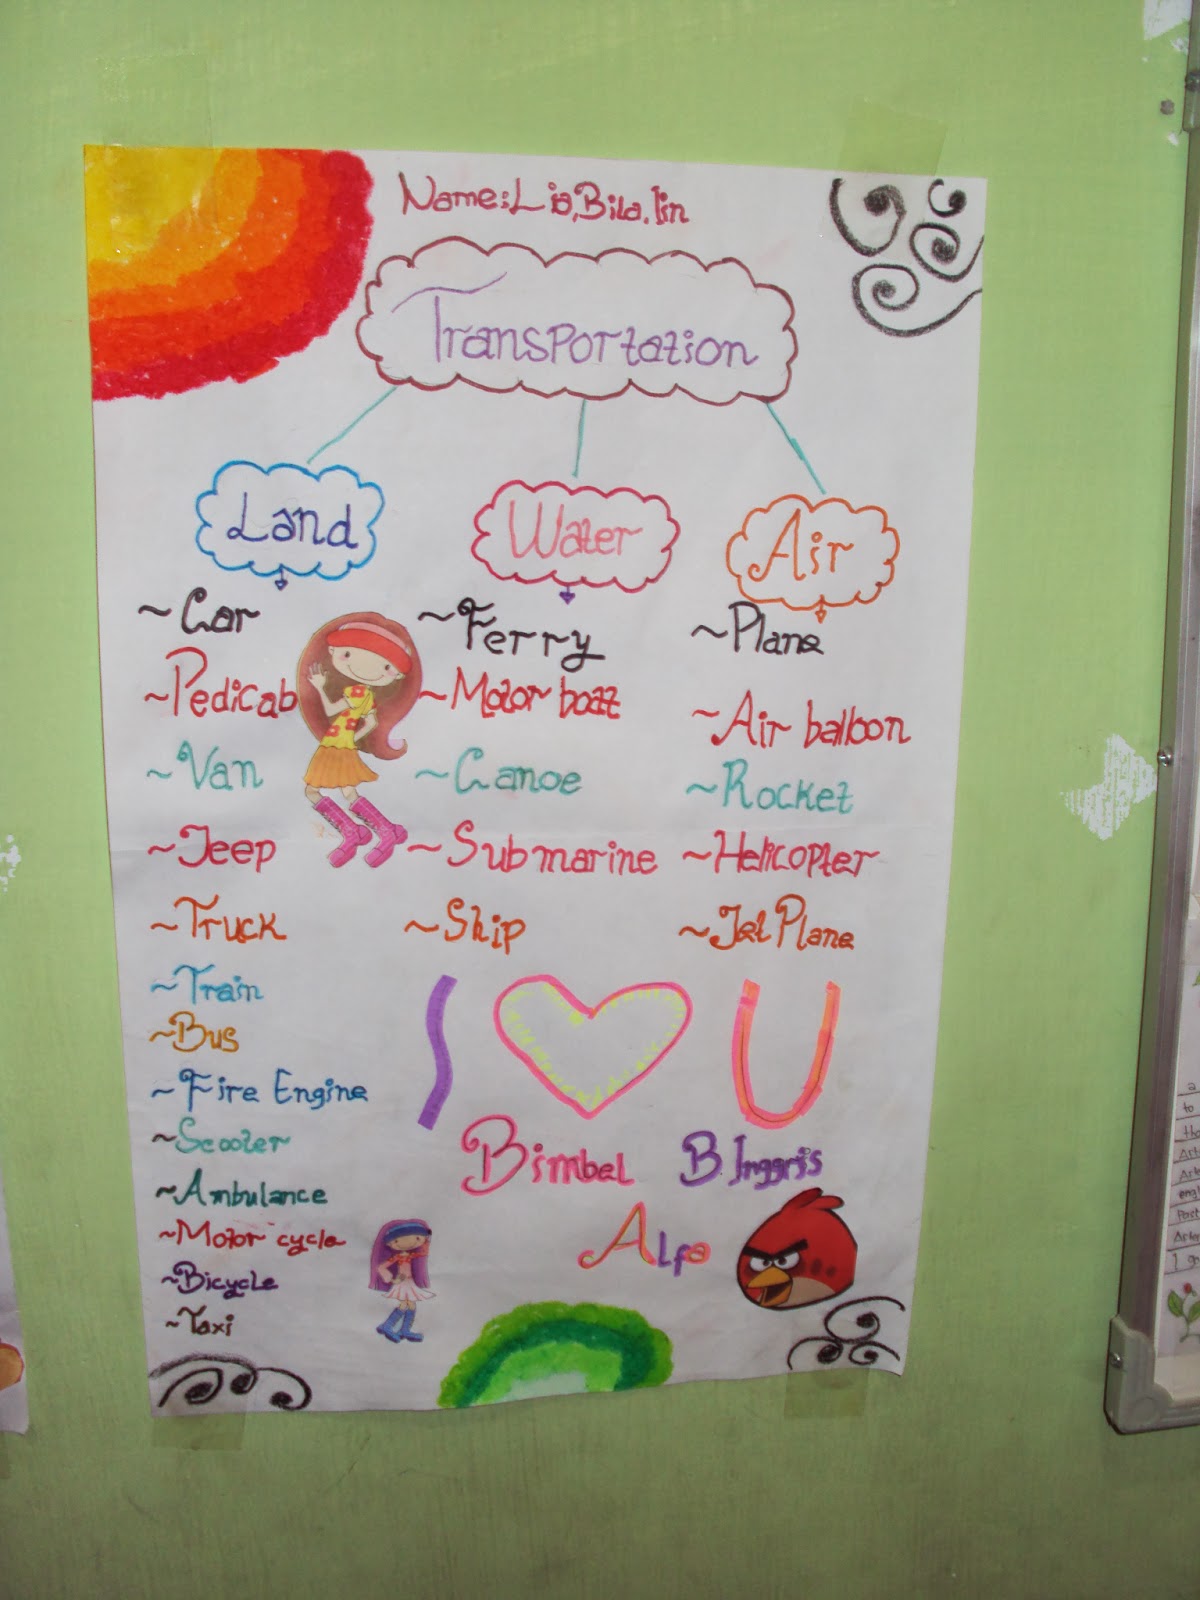 Name: Lia, Bila, Iin
Transportation
Land
Water
Air
~Car
~Pedicab
~Van
~Jeep
~Truck
~Train
~Bus
~Fire Engine
~Scooter
~Ambulance
~Motor cycle
~Bicycle
~Taxi
~Ferry
~Motor boat
~Canoe
~Submarine
~Ship
~Plane
~Air balloon
~Rocket
~Helicopter
~Jet Plane
I U
Bimbel B. Inggris
Alfa
a
to